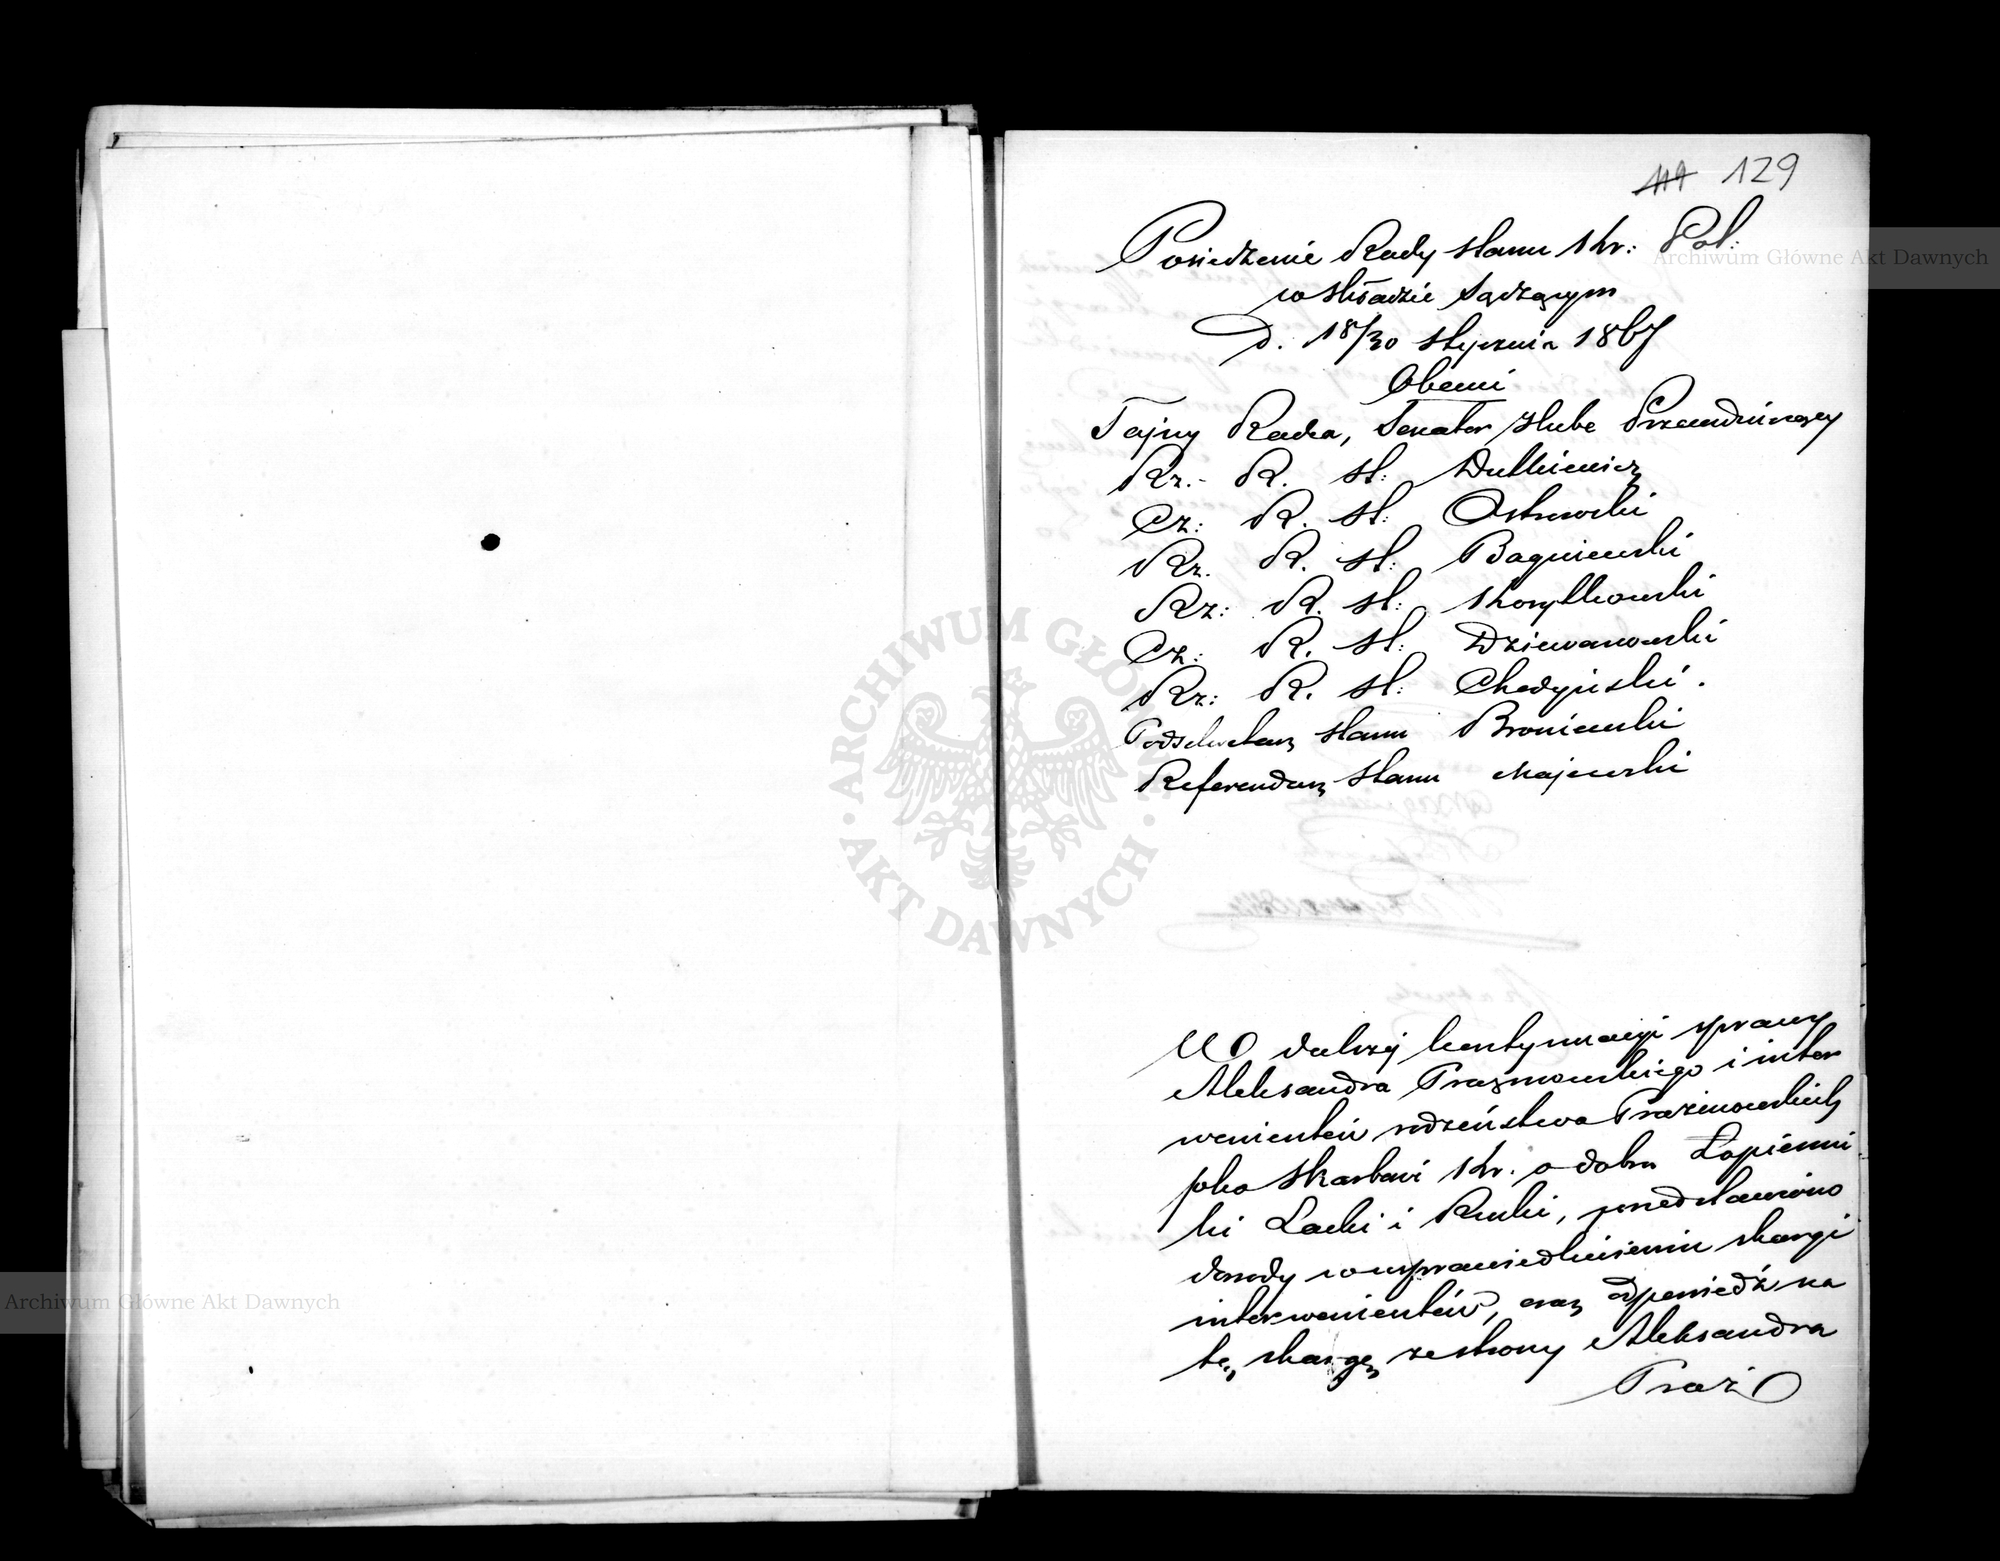 119 129
Posiedzenie Rady Stanu Kr: Pol:
w składzie Sądzącym
D. 18/30 Stycznia 1867
Obecni
Tajny Radca, Senator Hube Przewodniczący
Rz. R. St: Dutkiewicz
Cz: R. St: Ostrowski
Rz. R. St: Bagniewski
Rz: R. St: Korytkowski
Cz: R. St: Dziewanowski
Rz: R. St: Chądzyński.
Podsekretarz Stanu Broniewski
Referendarz Stanu Majewski
W dalszej kontynuacyi sprawy
Aleksandra Prażmowskiego i inter
wenientów rodzeństwa Prażmowskich
pko Skarbowi Kr. o dobra Łopienni
ki Lacki i Ruski, przedstawiono
dowody w usprawiedliwieniu skargi
interwenientów, oraz odpowiedź na
tę skargę ze strony Aleksandra
Praż
Archiwum Główne Akt Dawnych
Archiwum Główne Akt Dawnych
ARCHIWUM GŁÓWNE AKT DAWNYCH